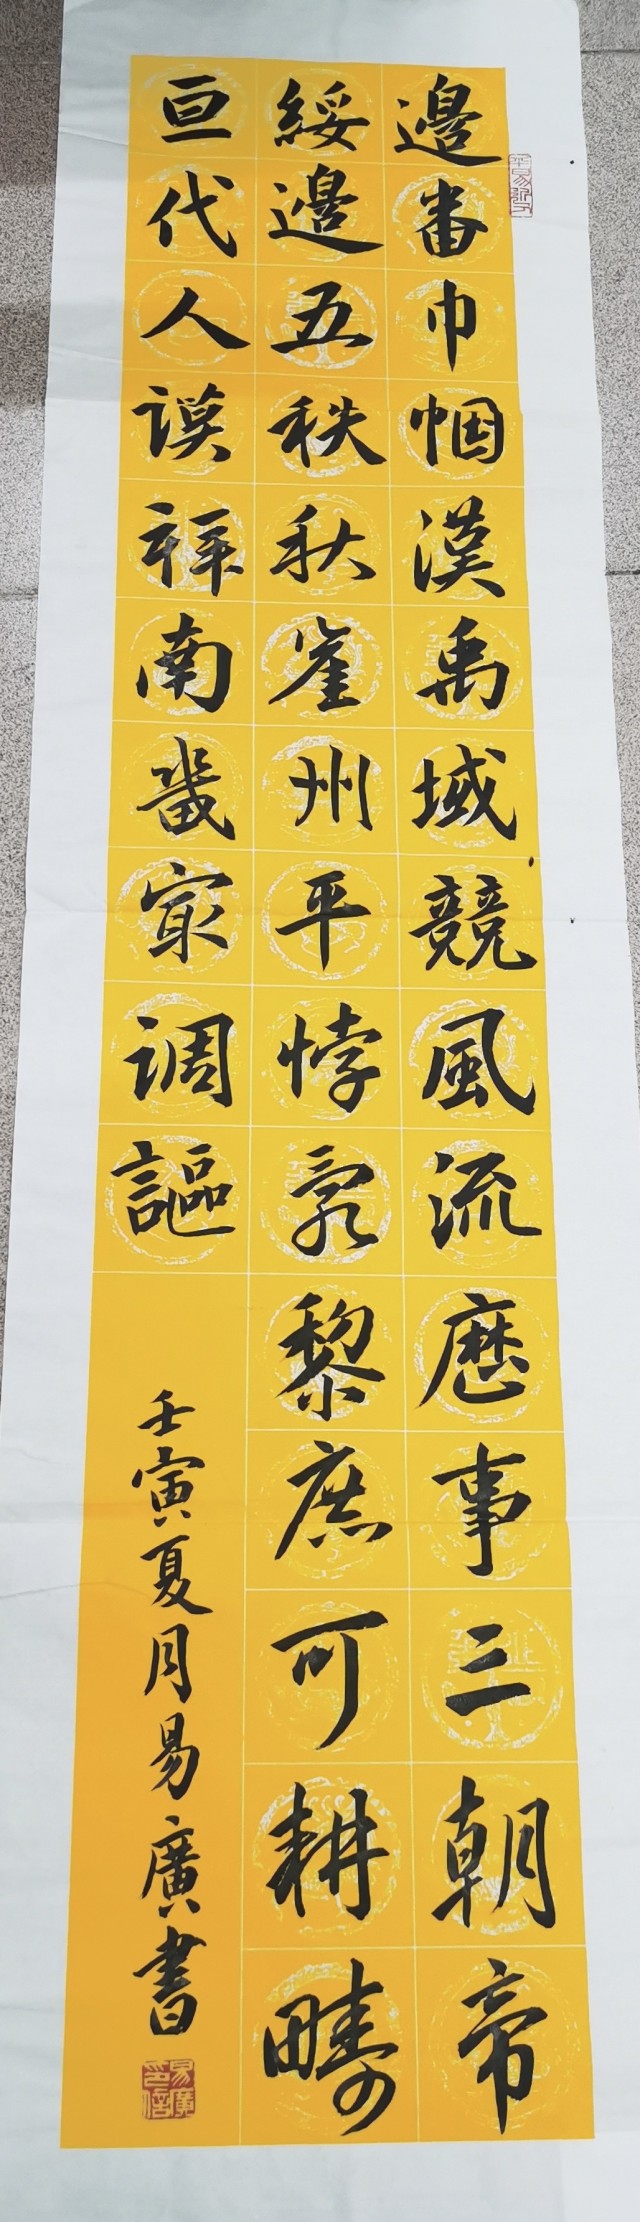 邊番巾帼漢禹域競風流歷事三朝帝
綏邊五秩秋崖州平悖亂黎庶可耕疇
亘代人谟祥南畿冣调謳
壬寅夏月易廣書
易廣印信